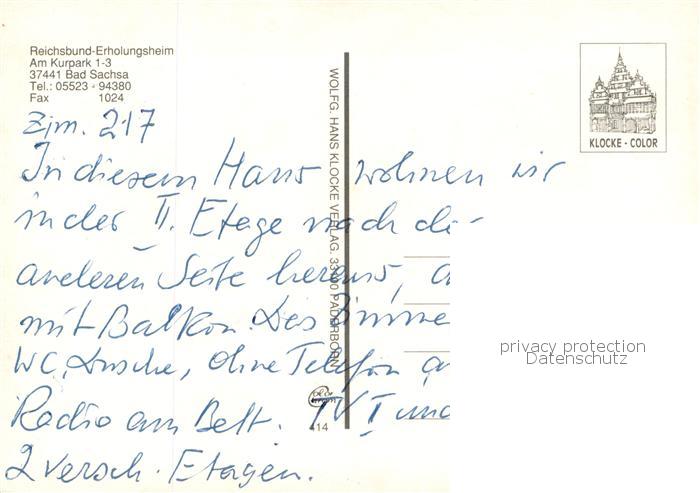 Reichsbund-Erholungsheim
Am Kurpark 1-3
37441 Bad Sachsa
Tel.: 05523 - 94380
Fax 1024
Zim. 217
In diesem Haus wohnen wir
in der II. Etage nach der
anderen Seite heraus,
mit Balkon. Das Zimme
WC, Dusche, ohne Telefon
Radio am Bett. TV I und
2 versch. Etagen.
WOLFG. HANS KLOCKE VERLAG, PADERBORN
414
KLOCKE - COLOR
privacy protection
Datenschutz